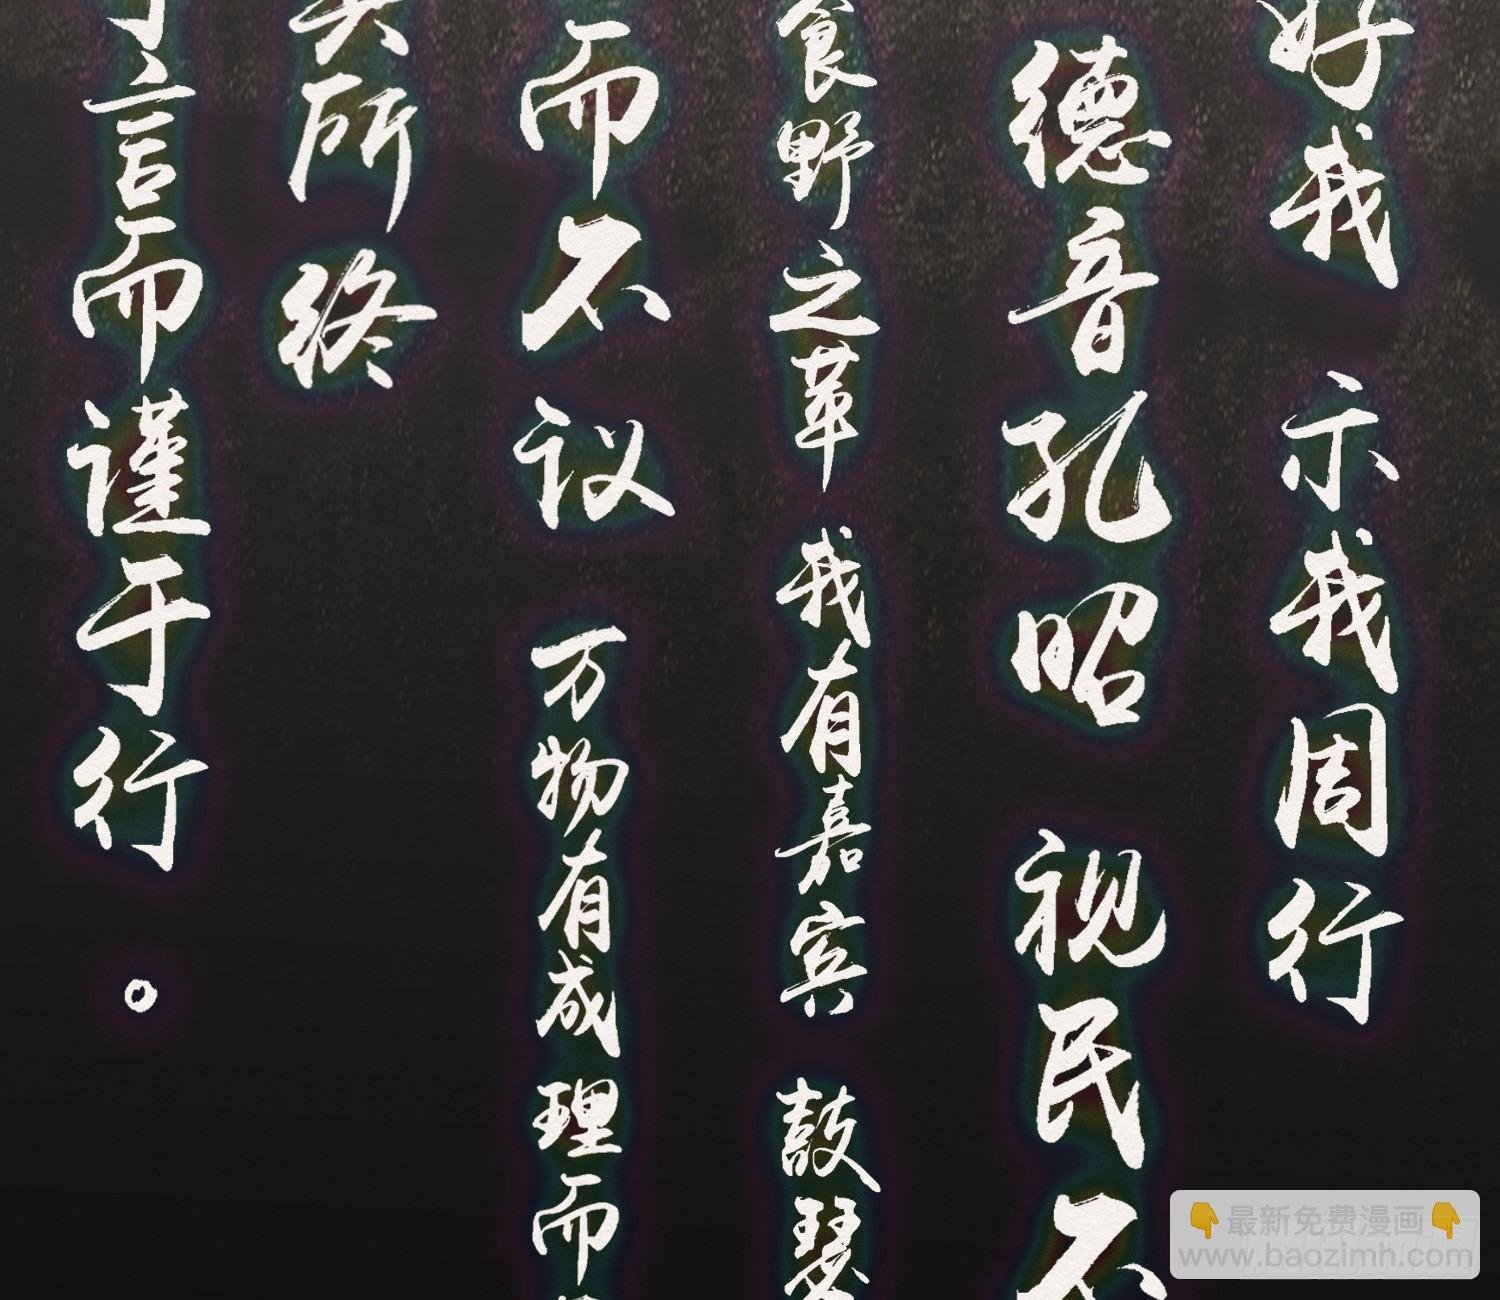 好我 示我周行
德音孔昭 视民不
食野之苹 我有嘉宾 鼓瑟
而不议 万物有成理而
所终
言而谨于行。
👇最新免费漫画👇
www.baozimh.com